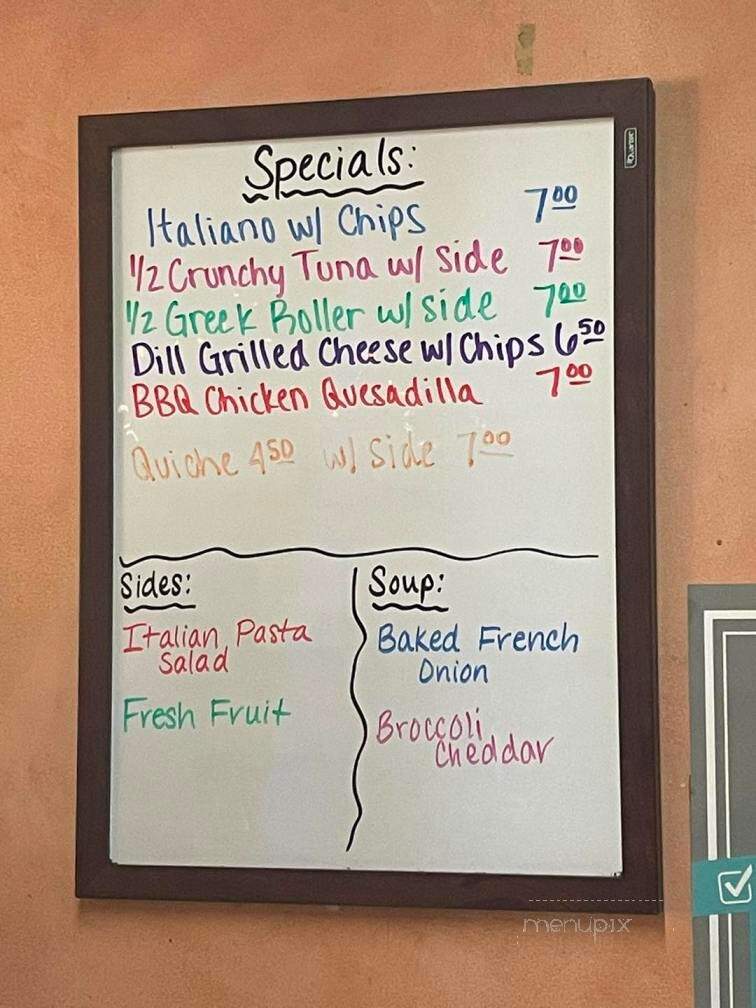 Specials:
Italiano w/ Chips 7.00
1/2 Crunchy Tuna w/ Side 7.00
1/2 Greek Roller w/ side 7.00
Dill Grilled Cheese w/ Chips 6.50
BBQ Chicken Quesadilla 7.00
Quiche 4.50 w/ Side 7.00
Sides:
Italian Pasta
Salad
Fresh Fruit
Soup:
Baked French
Onion
Broccoli
Cheddar
Quartet
menupix